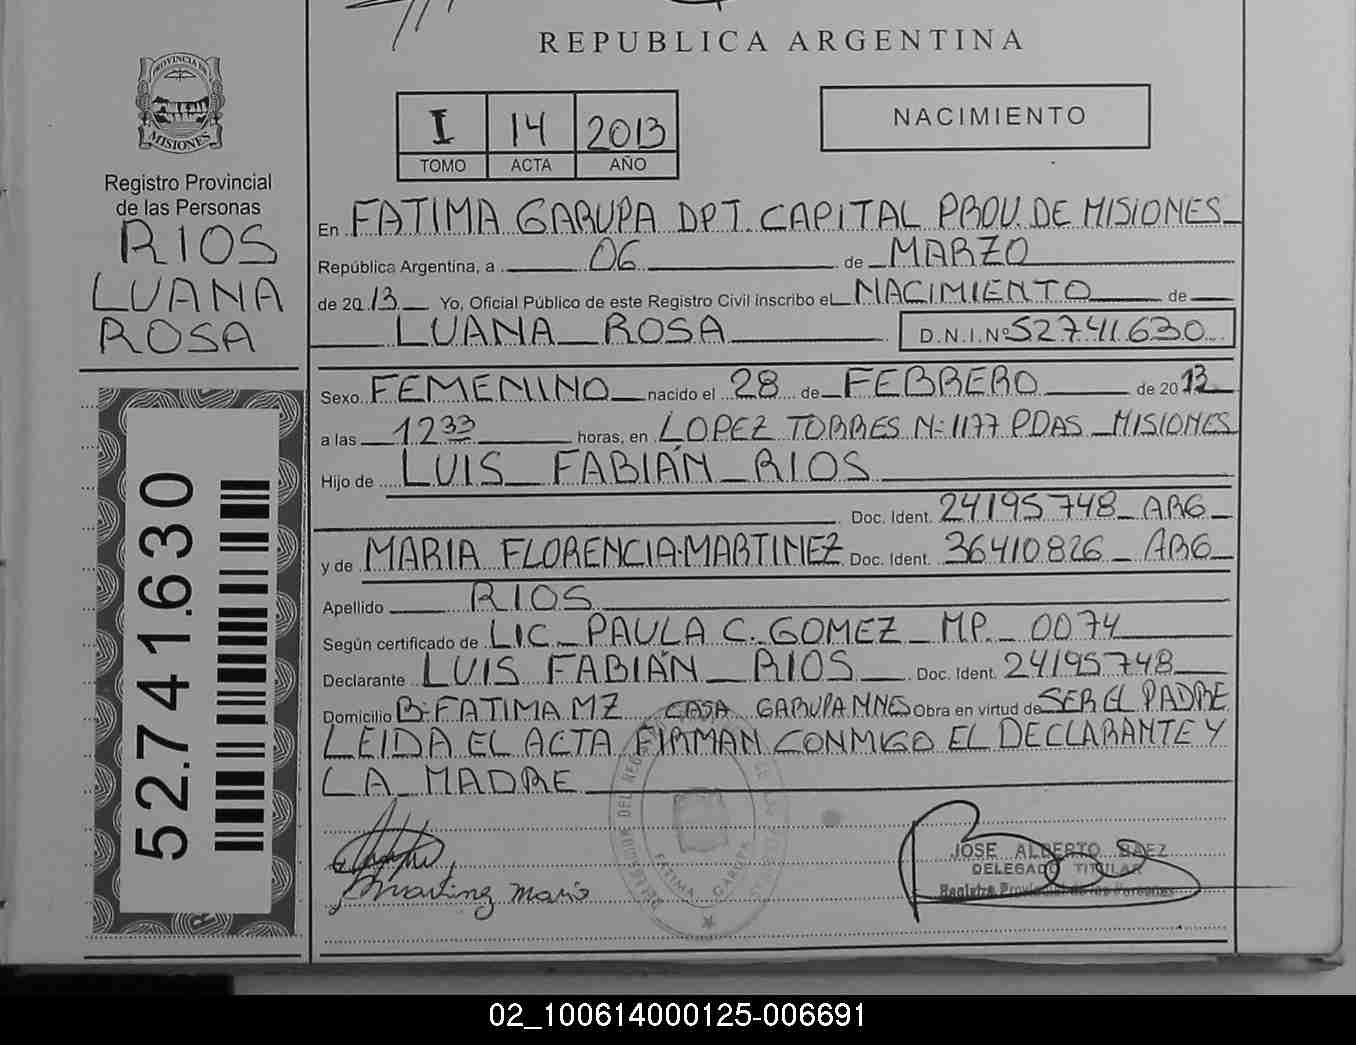 REPUBLICA ARGENTINA
PROVINCIA DE
MISIONES
Registro Provincial
de las Personas
RIOS
LUANA
ROSA
52.741.630
I 14 2013
TOMO ACTA AÑO
NACIMIENTO
En FATIMA GARUPA DPT. CAPITAL PROV. DE MISIONES
República Argentina, a 06 de MARZO
de 2013 Yo, Oficial Público de este Registro Civil inscribo el NACIMIENTO de
LUANA ROSA D.N.I.Nº 52.741.630
Sexo FEMENINO nacido el 28 de FEBRERO de 2013
a las 12 33 horas, en LOPEZ TORRES Nº 1177 PDAS MISIONES
Hijo de LUIS FABIÁN RIOS
Doc. Ident. 24195748 ARG
y de MARIA FLORENCIA MARTINEZ Doc. Ident. 36410826 ARG
Apellido RIOS
Según certificado de LIC. PAULA C. GOMEZ M.P. 0074
Declarante LUIS FABIÁN RIOS Doc. Ident. 24195748
Domicilio Bº FATIMA MZ CASA GARUPA MNES Obra en virtud de SER EL PADRE
LEIDA EL ACTA FIRMAN CONMIGO EL DECLARANTE Y
LA MADRE
Martinez Maria
JOSE ALBERTO BAEZ
DELEGADO TITULAR
Registro Provincial de las Personas
FATIMA GARUPA
02_100614000125-006691